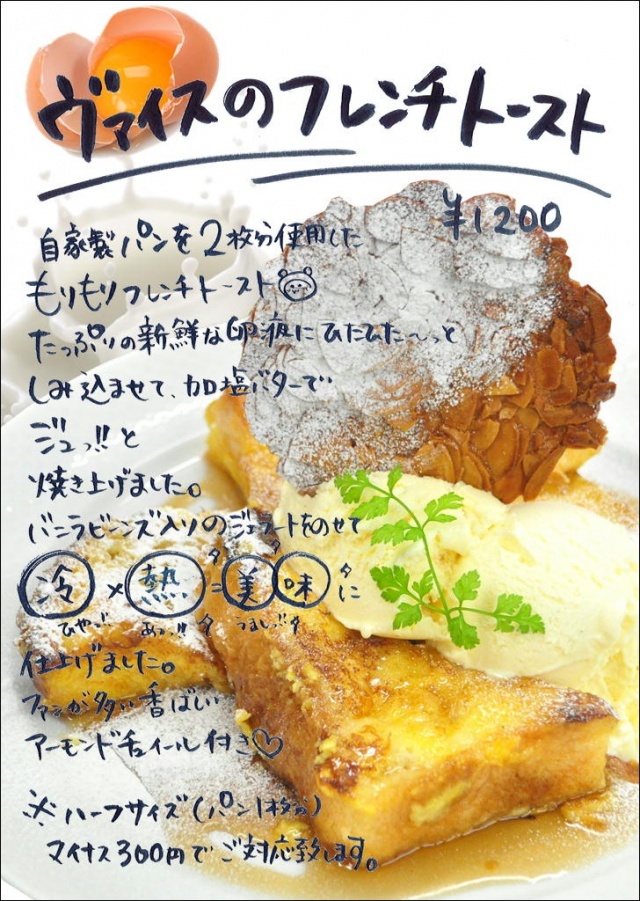 ヴァイスのフレンチトースト
¥1200
自家製パンを2枚分使用した
もりもりフレンチトースト
たっぷりの新鮮な卵液にひたひた〜っと
しみ込ませて、加塩バターで
ジュっ!!と
焼き上げました。
バニラビーンズ入りのジェラートをのせて
冷×熱=美味に
ひやっ!! あつっ!! うましっ!!
仕上げました。
ファンが多い香ばしい
アーモンドチュイール付き♡
※ハーフサイズ(パン1枚分)
マイナス300円でご対応致します。